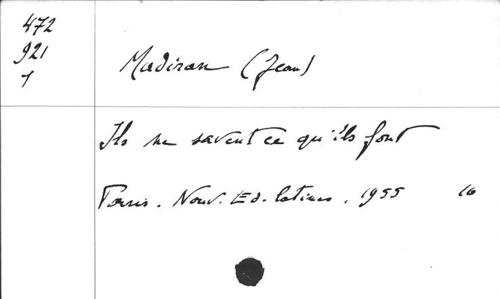 472
921
1
Madiran (Jean)
Ils ne savent ce qu'ils font
Paris. Nouv. Ed. latines, 1955 16